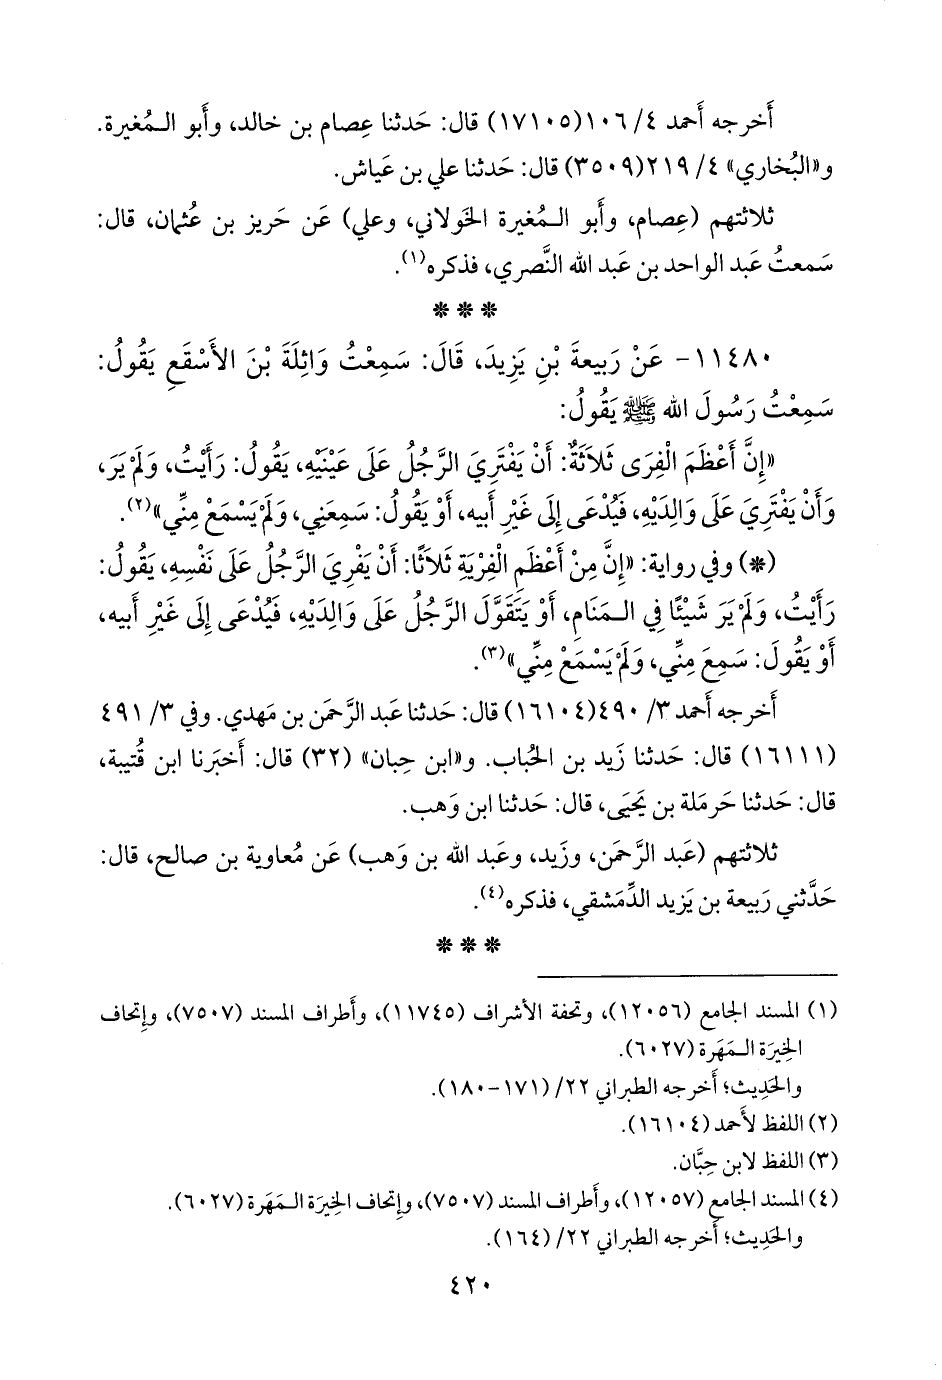 أَخرجه أَحمد ٤/ ١٠٦(١٧١٠٥) قال: حَدثنا عِصام بن خالد، وأَبو الـمُغيرة.
و«البُخاري» ٤/ ٢١٩(٣٥٠٩) قال: حَدثنا علي بن عَياش.
ثلاثتهم (عِصام، وأَبو الـمُغيرة الخَولاني، وعلي) عَن حَريز بن عُثمان، قال:
سَمعتُ عَبد الواحد بن عَبد الله النَّصري، فذكره(١).
* * *
١١٤٨٠- عَنْ رَبِيعةَ بْنِ يَزِيدَ، قَالَ: سَمِعْتُ وَاثِلَةَ بْنَ الأَسْقَعِ يَقُولُ:
سَمِعْتُ رَسُولَ الله ﷺ يَقُولُ:
«إِنَّ أَعْظَمَ الْفِرَى ثَلَاثَةٌ: أَنْ يَفْتَرِيَ الرَّجُلُ عَلَى عَيْنَيْهِ، يَقُولُ: رَأَيْتُ، وَلَمْ يَرَ،
وَأَنْ يَفْتَرِيَ عَلَى وَالِدَيْهِ، فَيُدْعَى إِلَى غَيْرِ أَبيه، أَوْ يَقُولُ: سَمِعَنِي، وَلَمْ يَسْمَعْ مِنِّي»(٢).
(*) وفي رواية: «إِنَّ مِنْ أَعْظَمِ الْفِرْيَةِ ثَلَاثًا: أَنْ يَفْرِيَ الرَّجُلُ عَلَى نَفْسِهِ، يَقُولُ:
رَأَيْتُ، وَلَمْ يَرَ شَيْئًا فِي الـمَنَامِ، أَوْ يَتَقَوَّلَ الرَّجُلُ عَلَى وَالِدَيْهِ، فَيُدْعَى إِلَى غَيْرِ أَبيه،
أَوْ يَقُولَ: سَمِعَ مِنِّي، وَلَمْ يَسْمَعْ مِنِّي»(٣).
أَخرجه أَحمد ٣/ ٤٩٠(١٦١٠٤) قال: حَدثنا عَبد الرَّحمَن بن مَهدي. وفي ٣/ ٤٩١
(١٦١١١) قال: حَدثنا زَيد بن الحُباب. و«ابن حِبان» (٣٢) قال: أَخبَرنا ابن قُتيبة،
قال: حَدثنا حَرمَلة بن يَحيَى، قال: حَدثنا ابن وَهب.
ثلاثتهم (عَبد الرَّحمَن، وزَيد، وعَبد الله بن وَهب) عَن مُعاوية بن صالح، قال:
حَدَّثني رَبيعة بن يَزيد الدِّمَشقي، فذكره(٤).
* * *
(١) المسند الجامع (١٢٠٥٦)، وتحفة الأشراف (١١٧٤٥)، وأَطراف المسند (٧٥٠٧)، وإِتحاف
الخِيرَة الـمَهَرة (٦٠٢٧).
والحَدِيث؛ أَخرجه الطبراني ٢٢/ (١٧١-١٨٠).
(٢) اللفظ لأَحمد (١٦١٠٤).
(٣) اللفظ لابن حِبَّان.
(٤) المسند الجامع (١٢٠٥٧)، وأَطراف المسند (٧٥٠٧)، وإِتحاف الخِيرَة الـمَهَرة (٦٠٢٧).
والحَدِيث؛ أَخرجه الطبراني ٢٢/ (١٦٤).
٤٢٠